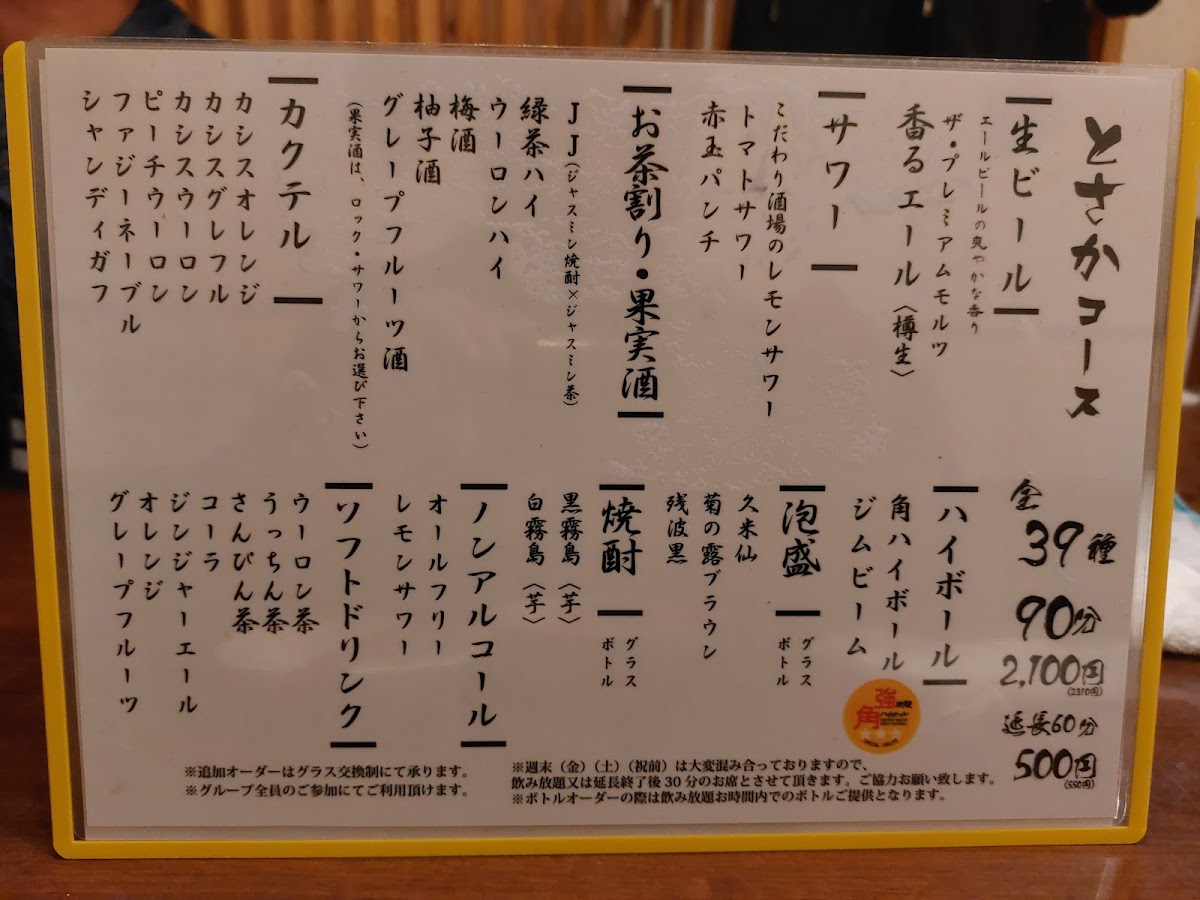 とさかコース
全39種
90分
2,100円
(2310円)
延長60分
500円
(550円)
生ビール
エールビールの爽やかな香り
ザ・プレミアムモルツ
香るエール〈樽生〉
サワー
こだわり酒場のレモンサワー
トマトサワー
赤玉パンチ
お茶割り・果実酒
JJ(ジャスミン焼酎×ジャスミン茶)
緑茶ハイ
ウーロンハイ
梅酒
柚子酒
グレープフルーツ酒
(果実酒は、ロック・サワーからお選び下さい)
カクテル
カシスオレンジ
カシスグレフル
カシスウーロン
ピーチウーロン
ファジーネーブル
シャンディガフ
ハイボール
角ハイボール
ジムビーム
強
角
泡盛
グラス
ボトル
久米仙
菊の露ブラウン
残波黒
焼酎
グラス
ボトル
黒霧島〈芋〉
白霧島〈芋〉
ノンアルコール
オールフリー
レモンサワー
ソフトドリンク
ウーロン茶
うっちん茶
さんぴん茶
コーラ
ジンジャーエール
オレンジ
グレープフルーツ
※追加オーダーはグラス交換制にて承ります。
※グループ全員のご参加にてご利用頂けます。
※週末（金）（土）（祝前）は大変混み合っておりますので、
飲み放題又は延長終了後30分のお席とさせて頂きます。ご協力お願い致します。
※ボトルオーダーの際は飲み放題お時間内でのボトルご提供となります。